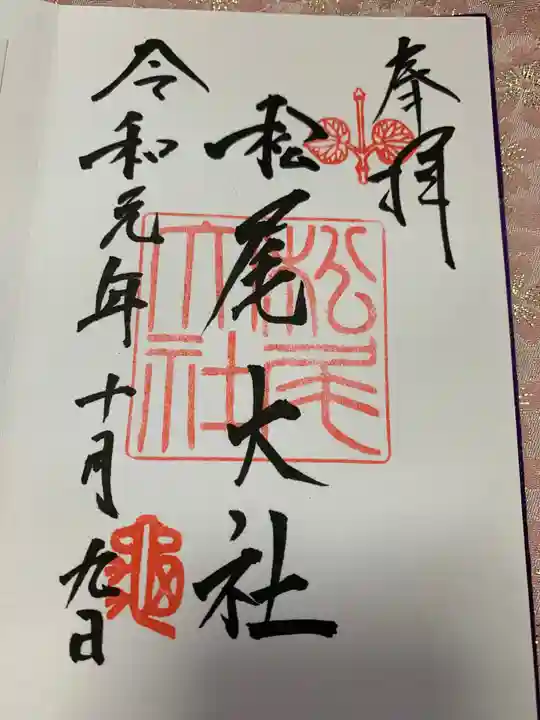 奉拝
松尾大社
松尾大社
令和元年十月九日
龜